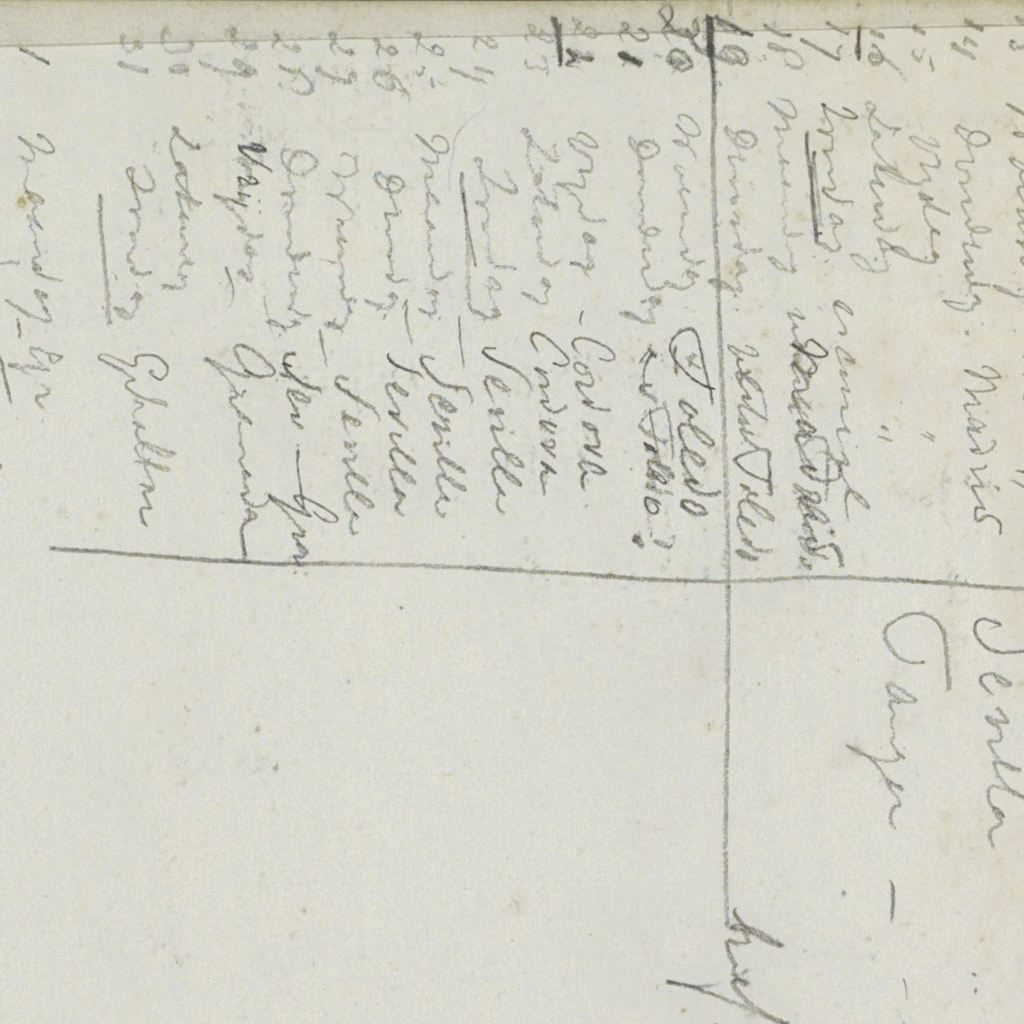 14 Donderdag. Madrid
15 Vrydag "
16 Zaterdag "
17 Zondag
18 Maandag
19 Dinsdag Toledo
20 Woensdag Toledo
21 Donderdag Toledo?
22 Vrydag - Cordova
23 Zaterdag Cordova
24 Zondag Sevilla
25 Maandag - Sevilla
26 Dinsdag - Sevilla
27 Woensdag - Sevilla
28 Donderdag Sev - Gran
29 Vrijdag - Granada
30 Zaterdag
31 Zondag Gibraltar
1 Maandag
Sevilla
Tanger -
brief